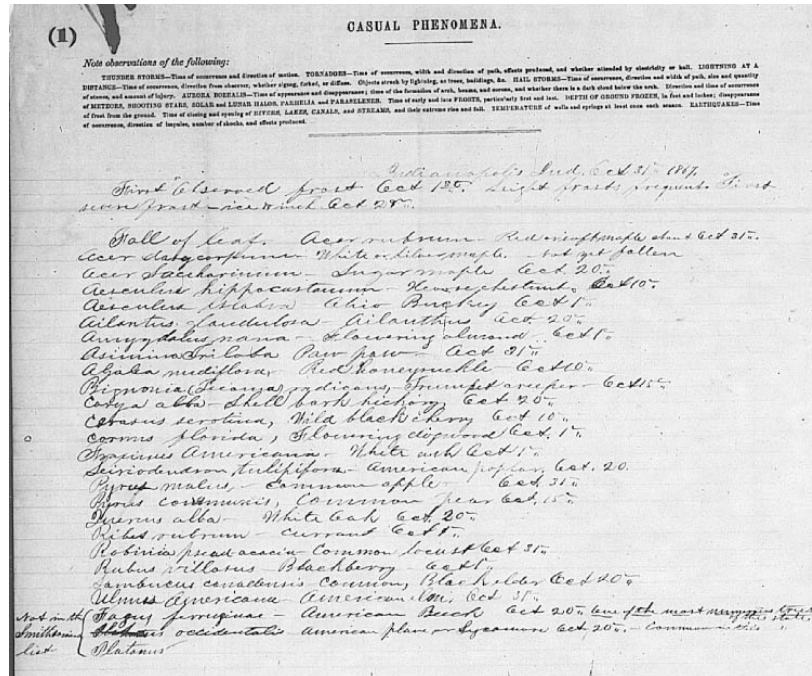 (1)
CASUAL PHENOMENA.
Note observations of the following:
THUNDER STORMS—Time of occurrence and direction of motion. TORNADOES—Time of occurrence, width and direction of path, effects produced, and whether attended by electricity or hail. LIGHTNING AT A
DISTANCE—Time of occurrence, direction from observer, whether zigzag, forked, or diffuse. Objects struck by lightning, as trees, buildings, &c. HAIL STORMS—Time of occurrence, direction and width of path, size and quantity
of stones, and amount of injury. AURORA BOREALIS—Time of appearance and disappearance; time of the formation of arch, beams, and corona, and whether there is a dark cloud below the arch. Direction and time of occurrence
of METEORS, SHOOTING STARS, SOLAR and LUNAR HALOS, PARHELIA and PARASELENÆ. Time of early and late FROSTS, particularly first and last. DEPTH OF GROUND FROZEN, in feet and inches; disappearance
of frost from the ground. Time of closing and opening of RIVERS, LAKES, CANALS, and STREAMS, and their extreme rise and fall. TEMPERATURE of wells and springs at least once each season. EARTHQUAKES—Time
of occurrence, direction of impulse, number of shocks, and effects produced.
Indianapolis Ind. Oct 31" 1867.
First Observed frost Oct Light frosts frequent. First
severe frost - ice inch Oct
Fall of leaf. Acer rubrum - Red maple about Oct 31".
Acer dasycarpum - White or Silver maple - not yet fallen
Acer Saccharinum - Sugar maple Oct 20"
Aesculus hippocastanum - Horse chestnut, Oct 10"
Aesculus Glabra Ohio Buckey Oct 1"
Ailantus glandulosa - Ailanthus Oct. 20"
Amygdalus nana - Flowering almond Oct 1"
Asimina Triloba Paw paw - Oct 31"
Azalea nudiflora, Red Honeysuckle - Oct 10"
Bignonia (Tecoma) radicans, Trumpet creeper - Oct 15"
Carya alba - Shell bark hickory, Oct 20"
Cerasus serotina, Wild black cherry Oct 10"
Cornus florida, Flowering dogwood Oct. 1"
Fraxinus Americana - White ash Oct 1"
Leiriodendron, tulipifera - American poplar, Oct. 20.
Pyrus malus, - Common apple - Oct. 31"
Pyrus communis, Common pear Oct. 15"
Quercus alba - White Oak Oct. 20"
Ribes rubrum - currant Oct 1"
Robinia pseud acacia - Common locust Oct 31"
Rubus villosus - Blackberry - Oct 1"
Sambucus canadensis common, Black elder Oct 20"
Ulmus Americana - American elm, Oct 31"
Not in the Smithsonian list
Fagus ferruginea - American Beech Oct 20" One of the most numerous trees of the state
occidentalis American plane or Sycamore Oct, 20" - Common
Platanus